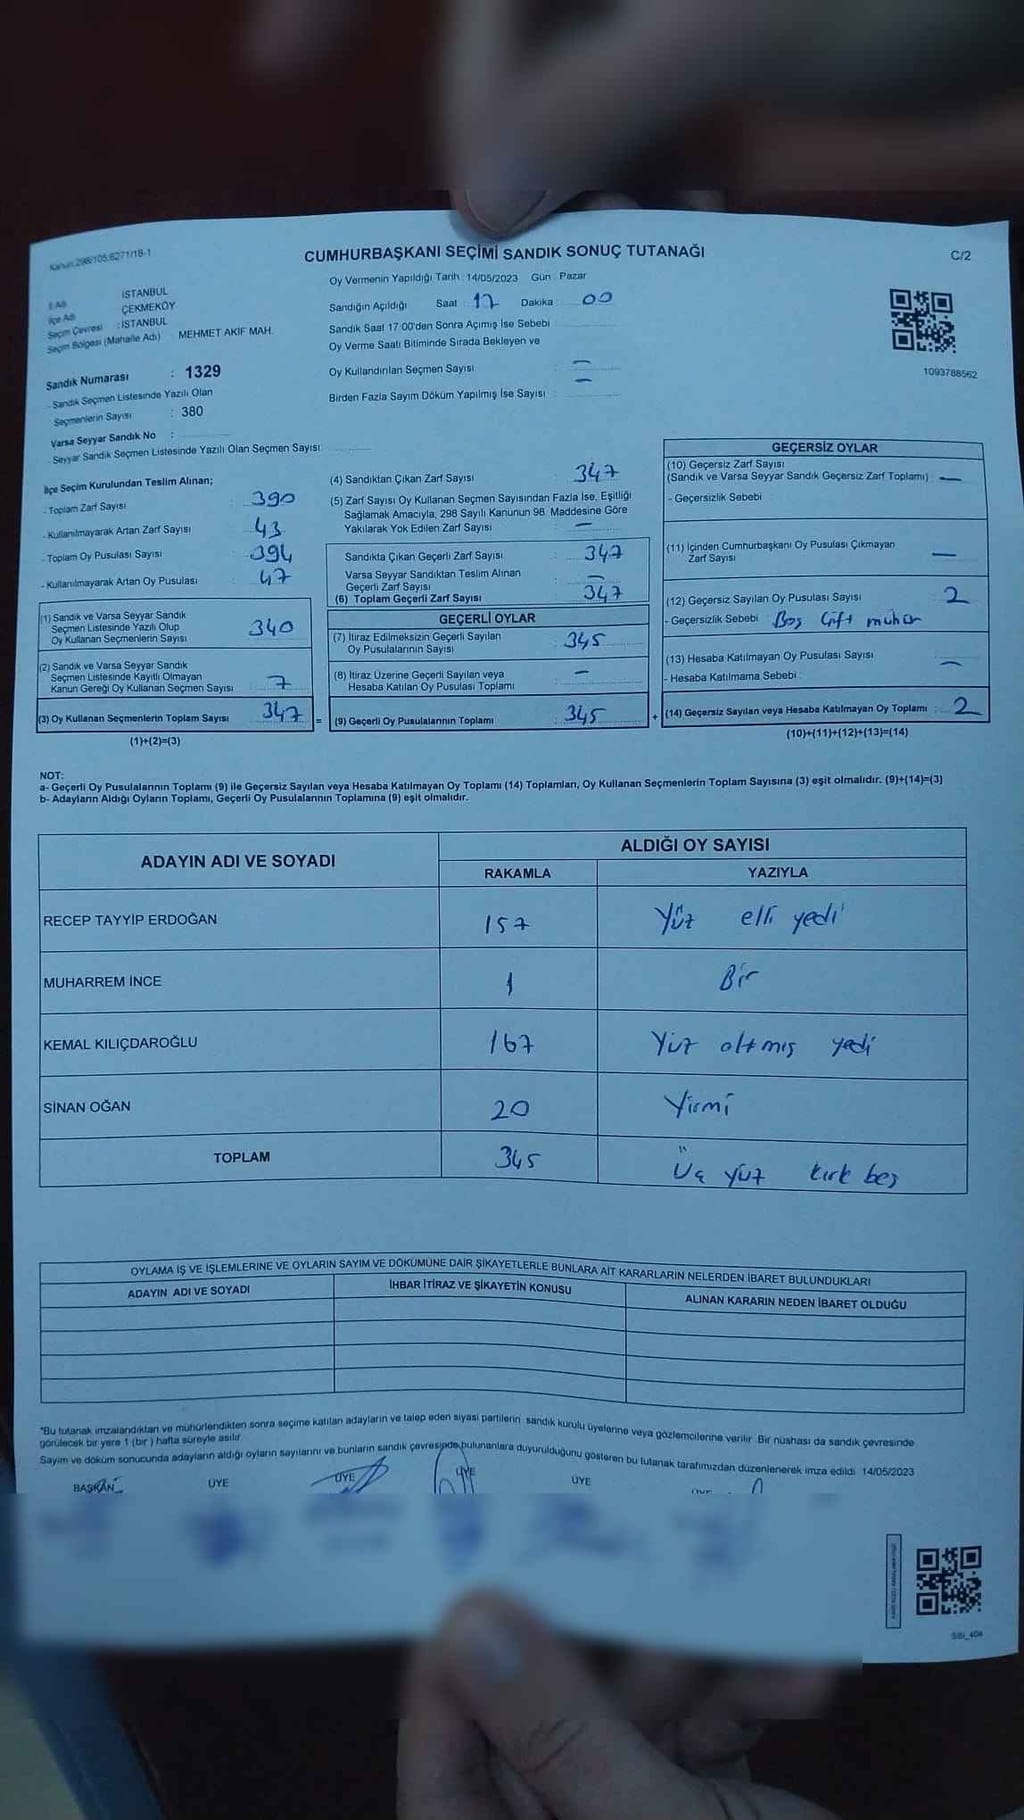 Kanun:298/105;6271/18-1
CUMHURBAŞKANI SEÇİMİ SANDIK SONUÇ TUTANAĞI
C/2
Oy Vermenin Yapıldığı Tarih : 14/05/2023 Gün : Pazar
İl Adı İSTANBUL
İlçe Adı ÇEKMEKÖY
Seçim Çevresi : İSTANBUL
Seçim Bölgesi (Mahalle Adı) MEHMET AKİF MAH.
Sandığın Açıldığı Saat 17 Dakika 00
Sandık Saat 17:00'den Sonra Açımış İse Sebebi
Oy Verme Saati Bitiminde Sırada Bekleyen ve
Oy Kullandırılan Seçmen Sayısı : —
Birden Fazla Sayım Döküm Yapılmış İse Sayısı : —
1093788562
Sandık Numarası : 1329
- Sandık Seçmen Listesinde Yazılı Olan
Seçmenlerin Sayısı : 380
Varsa Seyyar Sandık No :
- Seyyar Sandık Seçmen Listesinde Yazılı Olan Seçmen Sayısı:
İlçe Seçim Kurulundan Teslim Alınan;
- Toplam Zarf Sayısı : 390
- Kullanılmayarak Artan Zarf Sayısı : 43
- Toplam Oy Pusulası Sayısı : 394
- Kullanılmayarak Artan Oy Pusulası : 47
(1) Sandık ve Varsa Seyyar Sandık
Seçmen Listesinde Yazılı Olup
Oy Kullanan Seçmenlerin Sayısı 340
(2) Sandık ve Varsa Seyyar Sandık
Seçmen Listesinde Kayıtlı Olmayan
Kanun Gereği Oy Kullanan Seçmen Sayısı : 7
(3) Oy Kullanan Seçmenlerin Toplam Sayısı 347 =
(1)+(2)=(3)
(4) Sandıktan Çıkan Zarf Sayısı 347
(5) Zarf Sayısı Oy Kullanan Seçmen Sayısından Fazla İse, Eşitliği
Sağlamak Amacıyla, 298 Sayılı Kanunun 98. Maddesine Göre
Yakılarak Yok Edilen Zarf Sayısı —
Sandıkta Çıkan Geçerli Zarf Sayısı : 347
Varsa Seyyar Sandıktan Teslim Alınan
Geçerli Zarf Sayısı —
(6) Toplam Geçerli Zarf Sayısı : 347
GEÇERLİ OYLAR
(7) İtiraz Edilmeksizin Geçerli Sayılan
Oy Pusulalarının Sayısı 345
(8) İtiraz Üzerine Geçerli Sayılan veya
Hesaba Katılan Oy Pusulası Toplamı —
(9) Geçerli Oy Pusulalarının Toplamı 345 +
GEÇERSİZ OYLAR
(10) Geçersiz Zarf Sayısı
(Sandık ve Varsa Seyyar Sandık Geçersiz Zarf Toplamı) : —
- Geçersizlik Sebebi
(11) İçinden Cumhurbaşkanı Oy Pusulası Çıkmayan
Zarf Sayısı —
(12) Geçersiz Sayılan Oy Pusulası Sayısı : 2
- Geçersizlik Sebebi : Boş Çift mühür
(13) Hesaba Katılmayan Oy Pusulası Sayısı —
- Hesaba Katılmama Sebebi :
(14) Geçersiz Sayılan veya Hesaba Katılmayan Oy Toplamı : 2
(10)+(11)+(12)+(13)=(14)
NOT:
a- Geçerli Oy Pusulalarının Toplamı (9) ile Geçersiz Sayılan veya Hesaba Katılmayan Oy Toplamı (14) Toplamları, Oy Kullanan Seçmenlerin Toplam Sayısına (3) eşit olmalıdır. (9)+(14)=(3)
b- Adayların Aldığı Oyların Toplamı, Geçerli Oy Pusulalarının Toplamına (9) eşit olmalıdır.
ADAYIN ADI VE SOYADI
ALDIĞI OY SAYISI
RAKAMLA YAZIYLA
RECEP TAYYİP ERDOĞAN 157 Yüz elli yedi
MUHARREM İNCE 1 Bir
KEMAL KILIÇDAROĞLU 167 Yüz altmış yedi
SİNAN OĞAN 20 Yirmi
TOPLAM 345 Üç yüz kırk beş
OYLAMA İŞ VE İŞLEMLERİNE VE OYLARIN SAYIM VE DÖKÜMÜNE DAİR ŞİKAYETLERLE BUNLARA AİT KARARLARIN NELERDEN İBARET BULUNDUKLARI
ADAYIN ADI VE SOYADI İHBAR İTİRAZ VE ŞİKAYETİN KONUSU ALINAN KARARIN NEDEN İBARET OLDUĞU
*Bu tutanak imzalandıktan ve mühürlendikten sonra seçime katılan adayların ve talep eden siyasi partilerin sandık kurulu üyelerine veya gözlemcilerine verilir. Bir nüshası da sandık çevresinde
görülecek bir yere 1 (bir) hafta süreyle asılır.
Sayım ve döküm sonucunda adayların aldığı oyların sayılarını ve bunların sandık çevresinde bulunanlara duyurulduğunu gösteren bu tutanak tarafımızdan düzenlenerek imza edildi. 14/05/2023
BAŞKAN ÜYE ÜYE ÜYE ÜYE
SBI_404